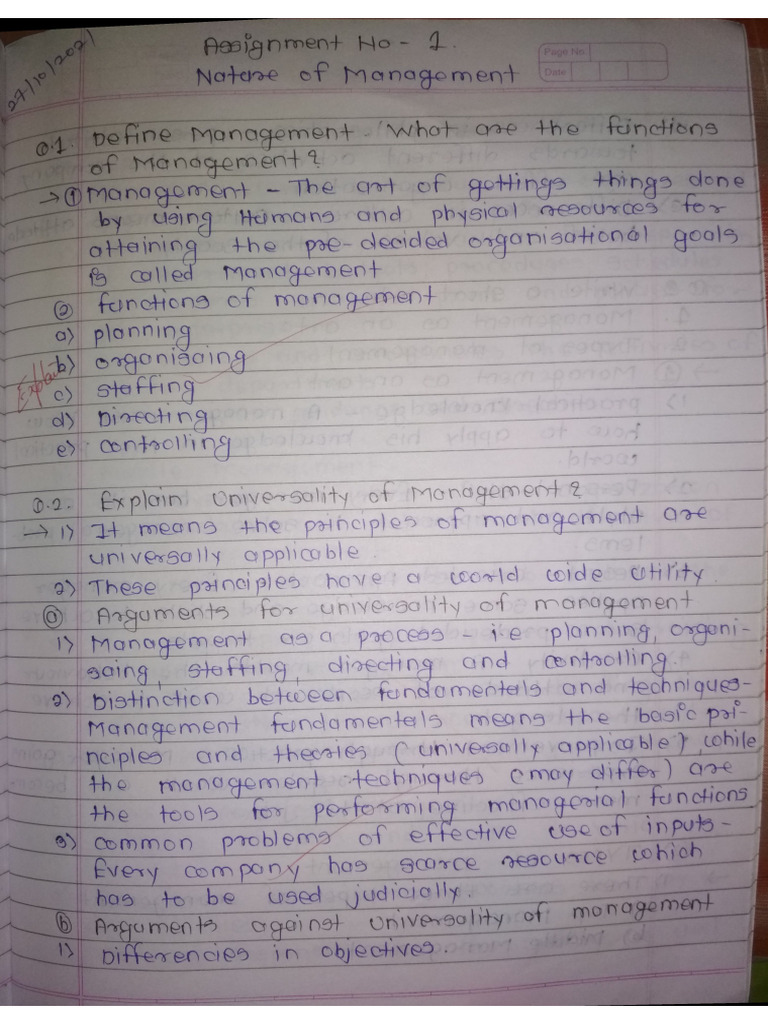 Assignment No - 1.
Page No
Date
27/10/2021
Nature of Management
Q.1. Define Management. What are the functions
of Management?
→ ① Management - The art of gettings things done
by using Humans and physical resources for
attaining the pre-decided organisational goals
is called Management
② functions of management
a) planning
b) organisaing
Explain
c) staffing
d) Directing
e) controlling
Q.2. Explain Universality of Management?
→ 1) It means the principles of management are
universally applicable.
2) These principles have a world wide utility.
ⓐ Arguments for universality of management
1) Management as a process - i.e planning, organi-
saing, staffing, directing and controlling.
2) Distinction between fundamentals and techniques-
Management fundamentals means the basic pri-
nciples and theories (universally applicable) while
the management techniques (may differ) are
the tools for performing managerial functions
3) common problems of effective use of inputs-
Every company has scarce resource which
has to be used judicially.
ⓑ Arguments against universality of management
1) Differencies in objectives.